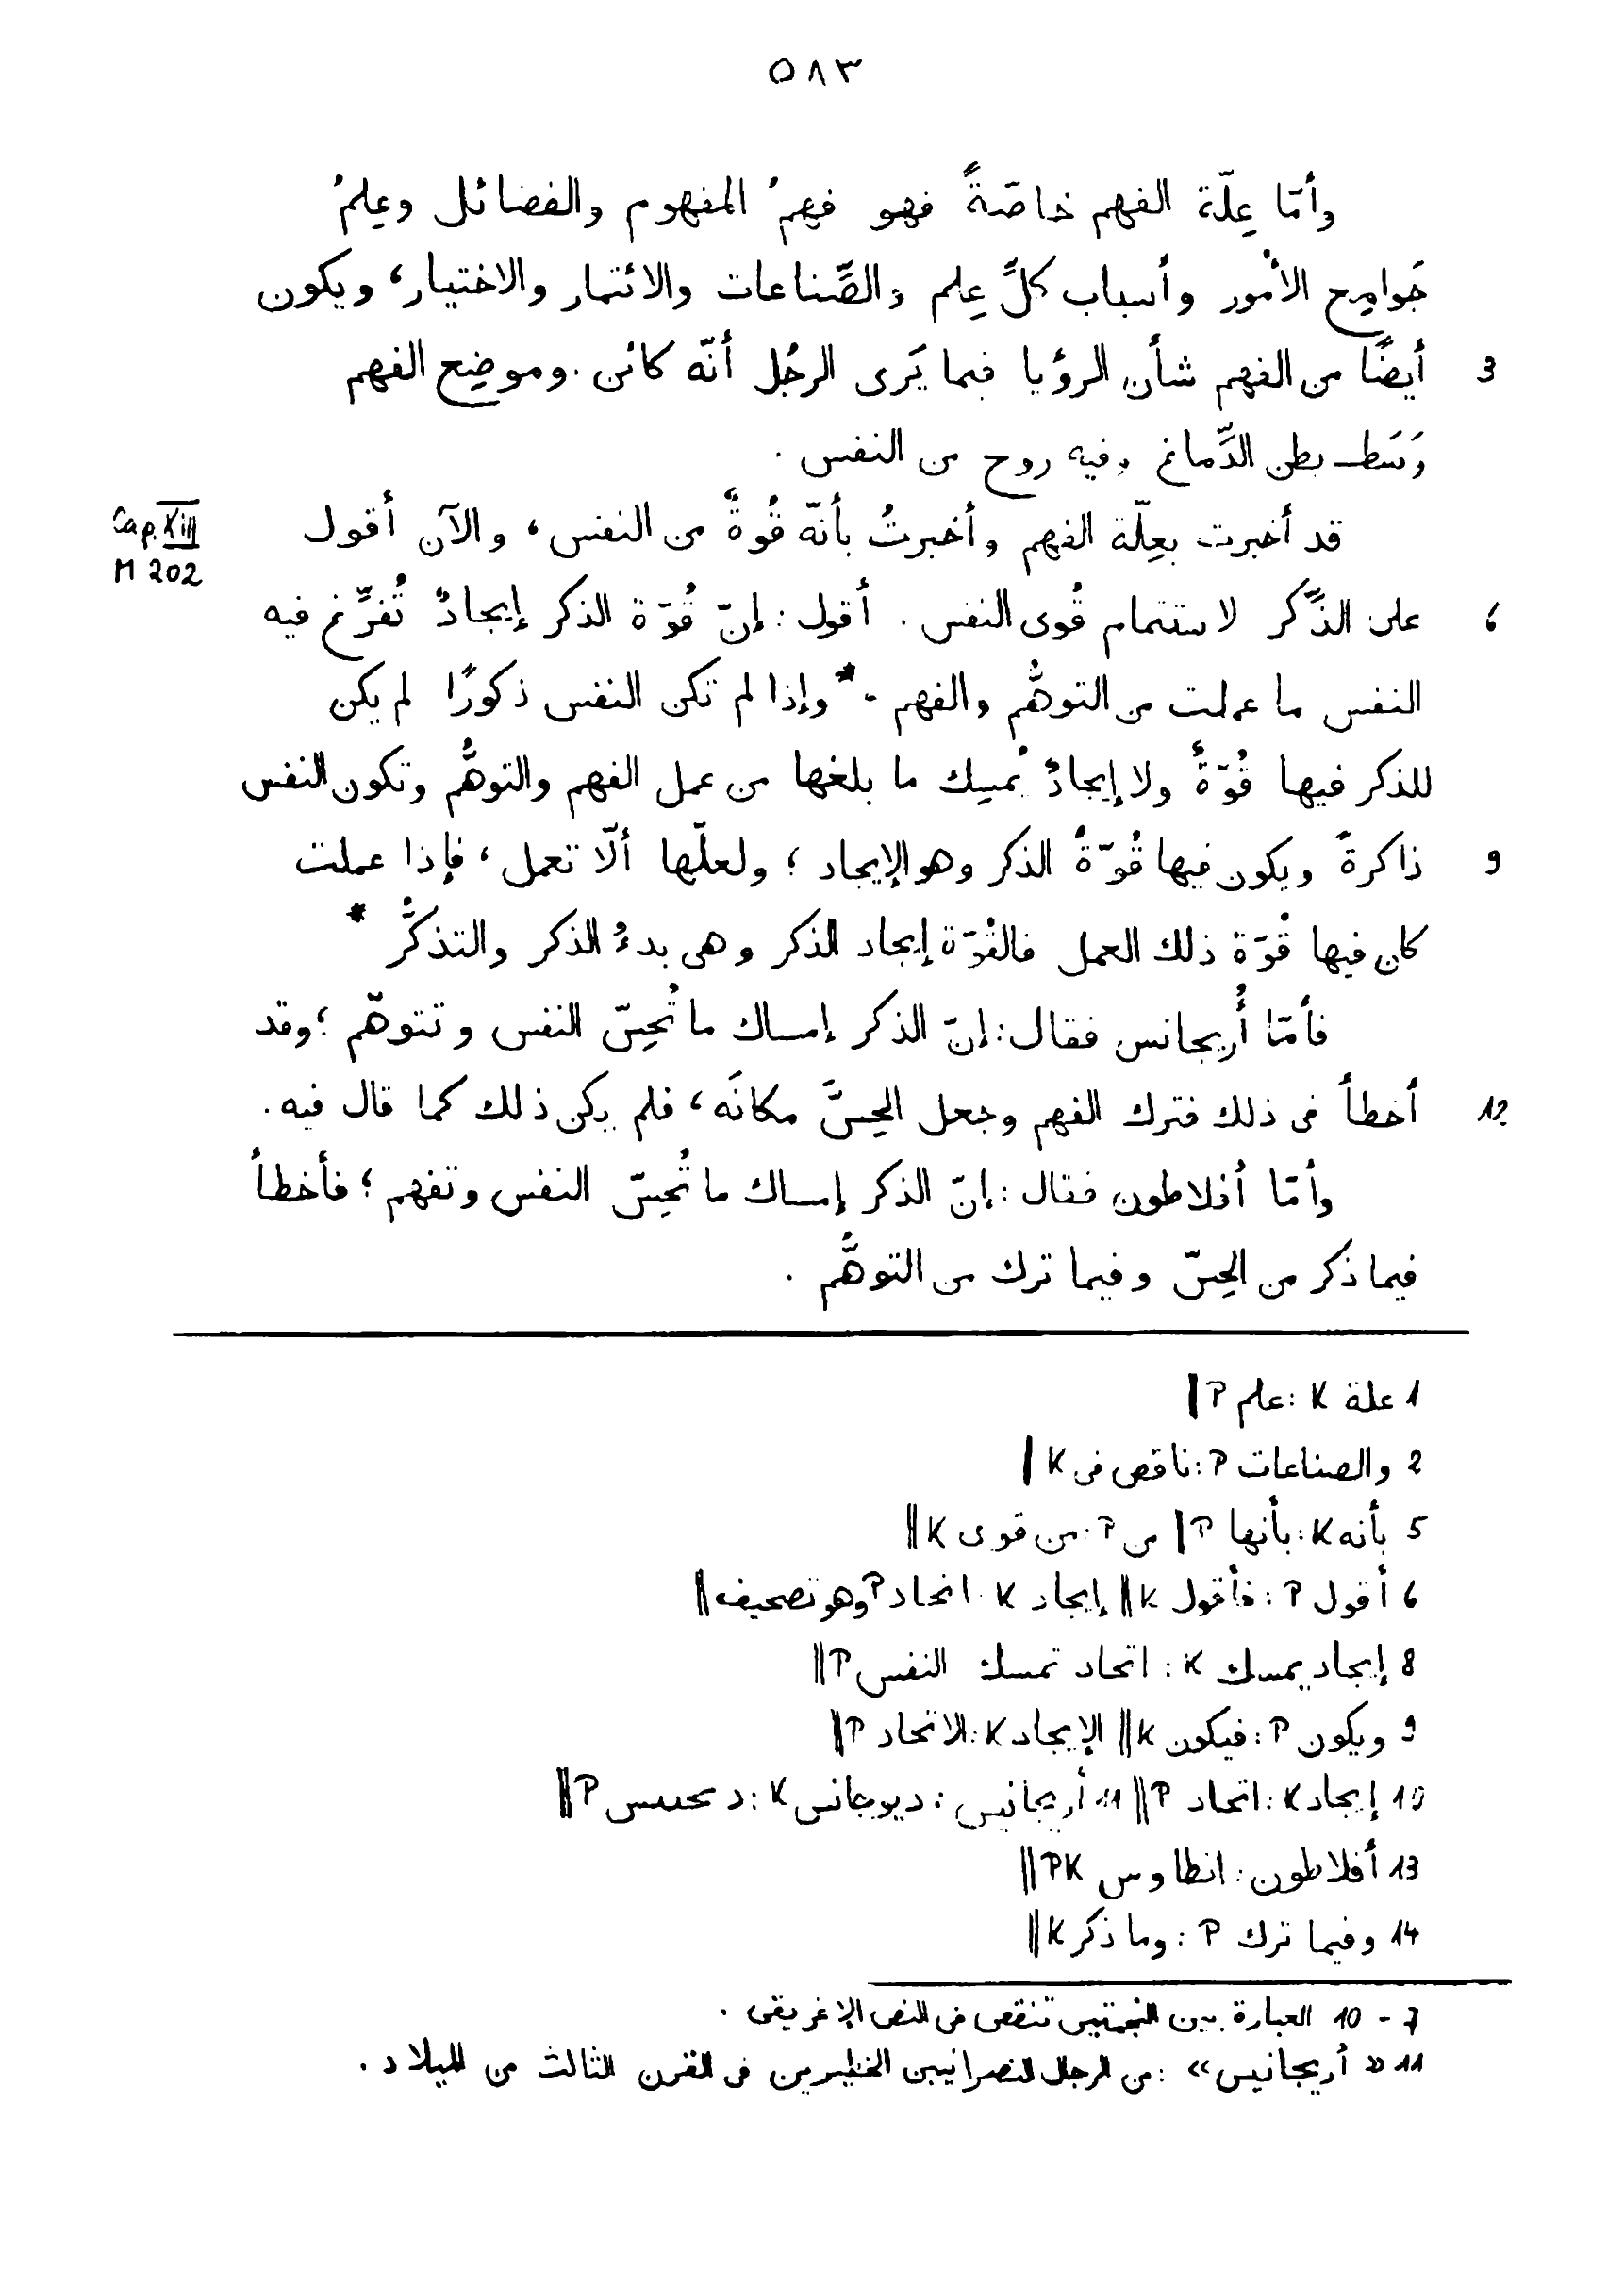 ٥٨٣
وأمّا عِلّة الفهم خاصّةً فهو فهمُ المفهوم والفضائل وعِلمُ
جَوامِع الأُمور وأسباب كلِّ عِلم والصِّناعات والائتمار والاختيار، ويكون
3 أيضًا من الفهم شأن الرؤيا فيما يَرى الرجُل أنّه كائن. وموضِع الفهم
وَسَط بطن الدِّماغ وفيه روح من النفس.
Cap. XIII قد أخبرت بعِلّة الفهم وأخبرتُ بأنّه قُوةٌ من النفس، والآن أقول
M 202
6 على الذِّكر لاستتمام قُوى النفس. أقول: إنّ قُوّة الذكر إيجادٌ تُفرِّغ فيه
النفس ما عملت من التوهُّم والفهم - * وإذا لم تكن النفس ذكورًا لم يكن
للذكر فيها قُوّةٌ ولا إيجادٌ يُمسِك ما بلغها من عمل الفهم والتوهُّم وتكون النفس
9 ذاكرةً ويكون فيها قُوّةُ الذكر وهو الإيجاد؛ ولعلّها ألّا تعمل، فإذا عملت
كان فيها قُوّة ذلك العمل فالقُوّة إيجاد الذكر وهى بدءُ الذكر والتذكُّر *
فأمّا أُريجانس فقال: إنّ الذكر إمساك ما تُحِسّ النفس وتتوهّم؛ وقد
12 أخطأ فى ذلك فترك الفهم وجعل الحِسَّ مكانَه، فلم يكن ذلك كما قال فيه.
وأمّا أفلاطون فقال: إنّ الذكر إمساك ما تُحِسّ النفس وتفهم؛ فأخطأ
فيما ذكر من الحِسّ وفيما ترك من التوهُّم.
1 علة K: علم P ‖
2 والصناعات P: ناقص فى K ‖
5 بأنه K: بأنها P ‖ من P: من قوى K ‖
6 أقول P: فأقول K ‖ إيجاد K: اتحاد P وهو تصحيف ‖
8 إيجاد يمسك K: اتحاد تمسك النفس P ‖
9 ويكون P: فيكون K ‖ الإيجاد K: الاتحاد P ‖
10 إيجاد K: اتحاد P ‖ 11 أريجانيس: ديوجانس K: P ‖
13 أفلاطون: انطاوس PK ‖
14 وفيما ترك P: وما ذكر K ‖
7 - 10 العبارة بين النجمتين تنقص فى النص الإغريقى.
11 « أريجانيس »: من الرجال النصرانيين الخطيرين فى القرن الثالث من الميلاد.